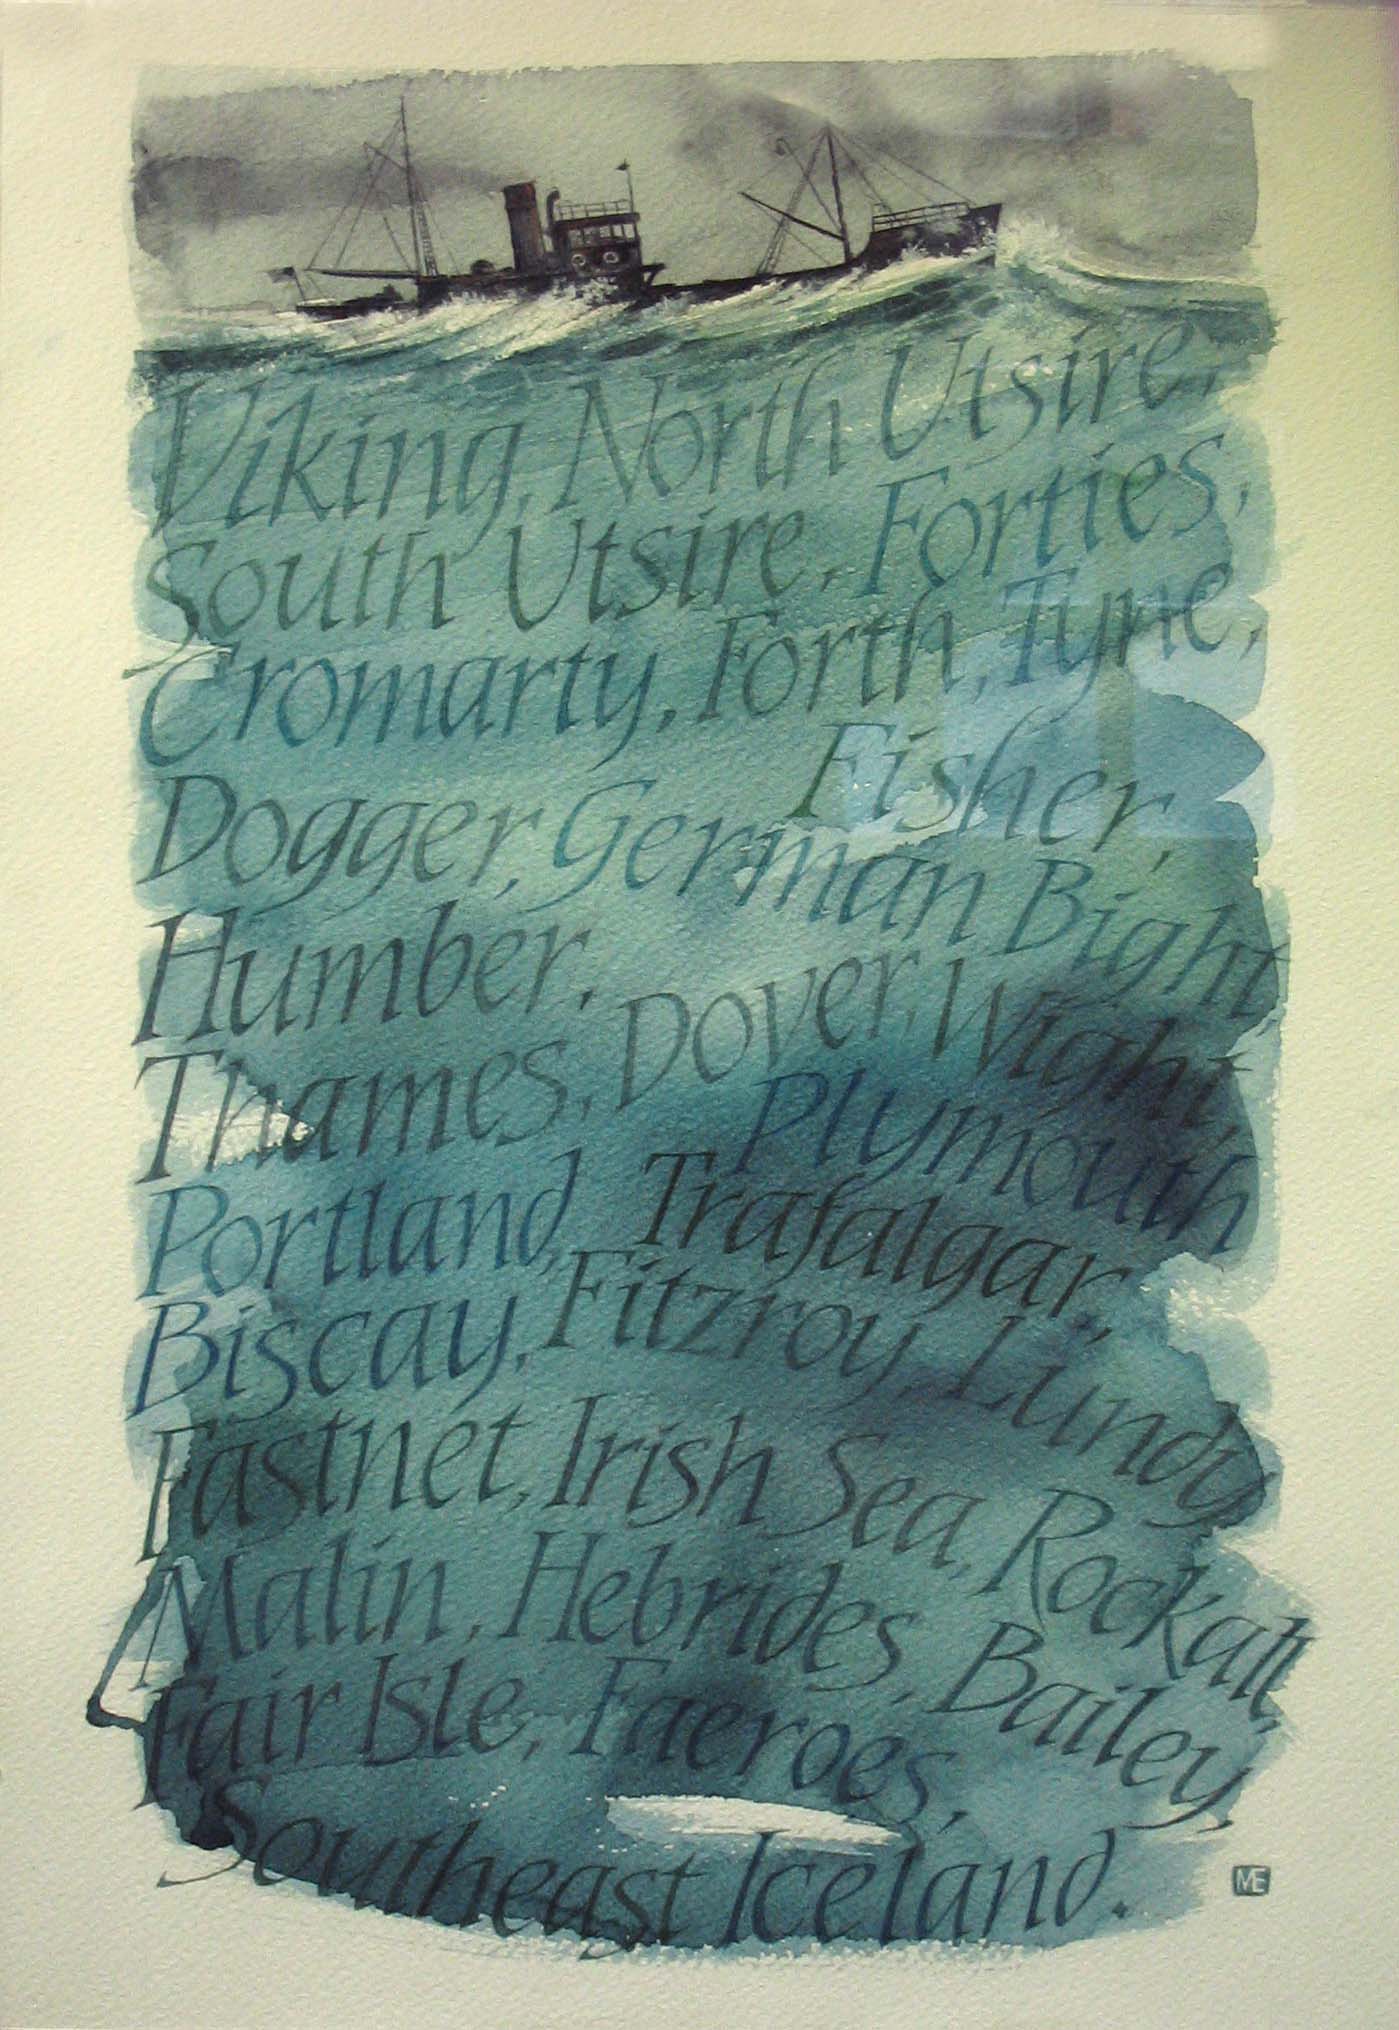 Viking, North Utsire,
South Utsire, Forties,
Cromarty, Forth, Tyne,
Fisher,
Dogger, German Bight,
Humber,
Thames, Dover, Wight,
Plymouth
Portland, Trafalgar,
Biscay, Fitzroy, Lundy
Fastnet, Irish Sea, Rockall,
Malin, Hebrides, Bailey,
Fair Isle, Faeroes,
Southeast Iceland.
ME